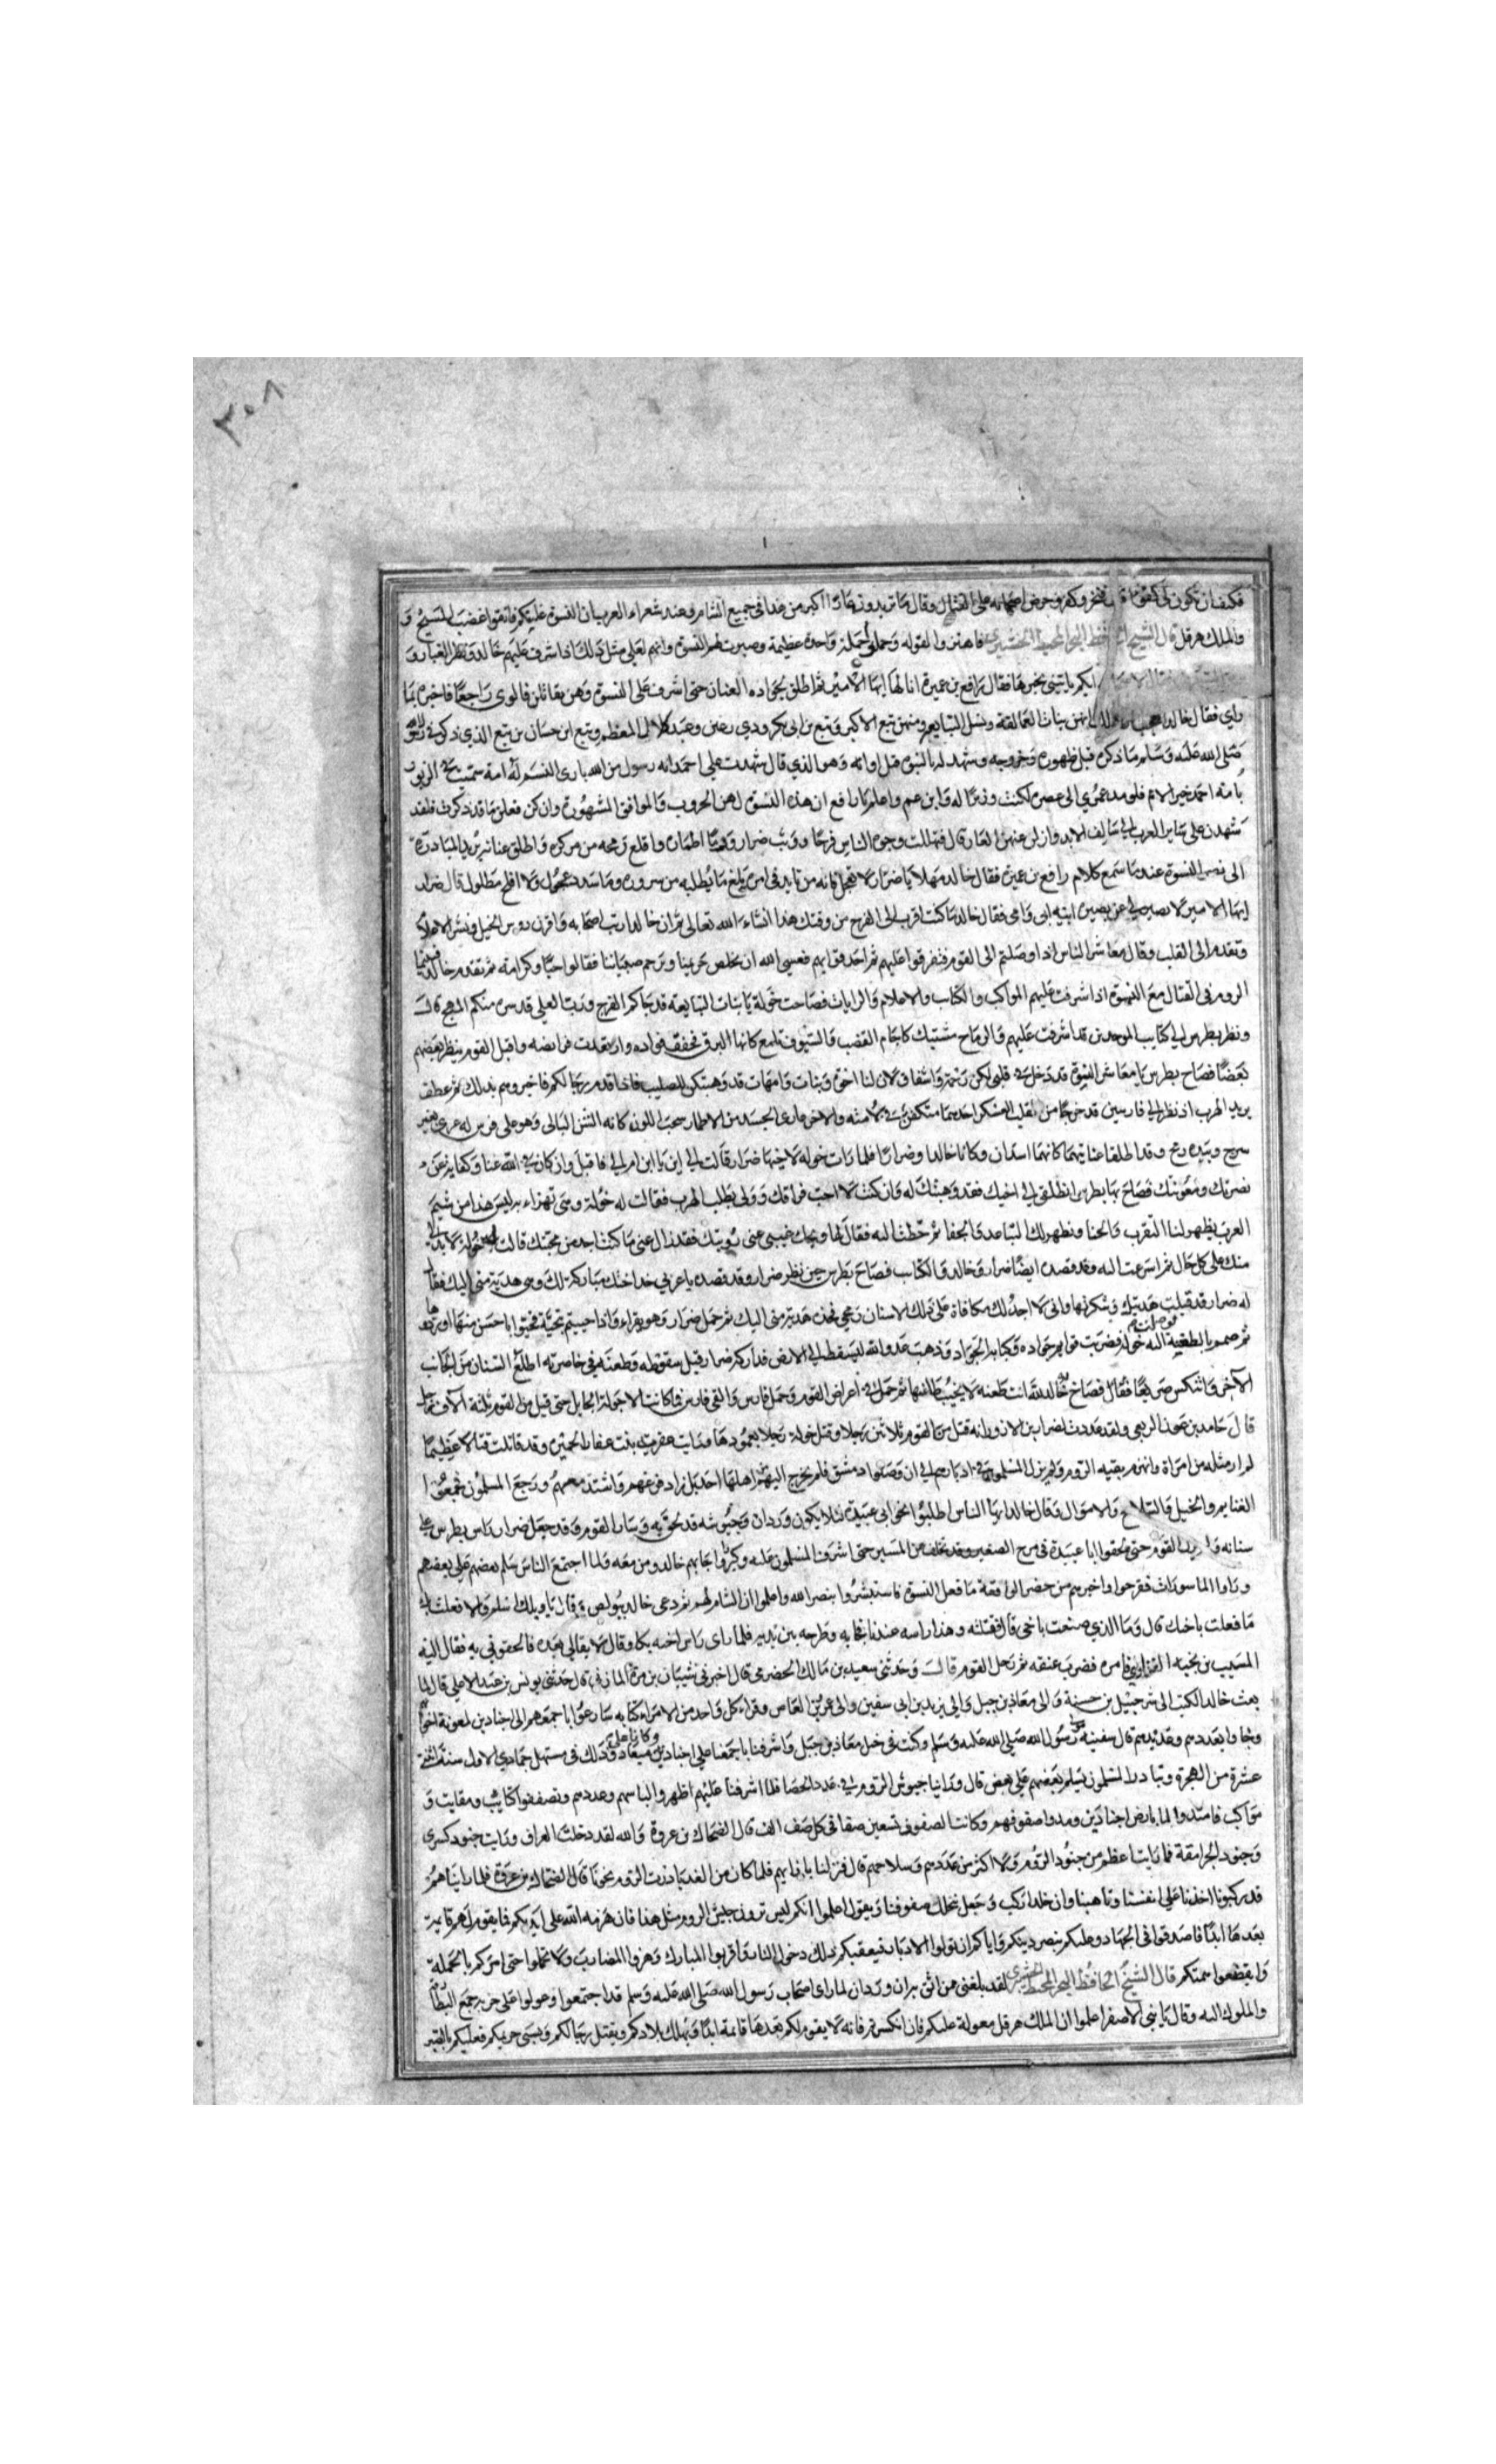 ٣٠٨
فكيف ان تكون لي كفوا وحرض اصحابه على القتال وقال ما تريدون عارا اكبر من هذا في جميع الشام وعند شعراء العرب ان النسوة غلبنكم فاتقوا غضب المسيح و
والملك هرقل قال الشيخ الحافظ البحر المحيط الحضيري فاهتزوا لقوله وحملوا حملة واحدة عظيمة وصبرت لهم النسوة وانهم لعلى مثل ذلك اذ اشرف عليهم خالد ونظر الغبار و
ايكم ياتيني بخبرها فقال رافع بن عميرة انا لها ايها الامير ثم اطلق بجواده العنان حتى اشرف على النسوة وهن يقاتلن فالوى راجعا فاخبره بما
راي فقال خالد انهن بنات العمالقة ونسل التبايعة ومنهن تبع الاكبر وتبع بن ابي بكر ودي رعين وعبد كلال المعظم وتبع ابن حسان بن تبع الذي ذكر
صلى الله عليه وسلم ما ذكره قبل ظهوره وخروجه وشهد له بالنبوة قبل اوانه وهو الذي قال شهدت على احمد انه رسول من الله بارى النسم له امة سميت في الزبور
بامة احمد خير الامم فلو مد عمري الى عصره لكنت وزيرا له وابن عم واعلم يا رافع ان هذه النسوة لهن الحروب والمواقف المشهورة وان كن فعلن ما قد ذكرت فلقد
شهدن على ساير العرب الى سالف الابد وازلن عنهن العار قال فتهللت وجوه الناس فرحا ووثب ضرار اطماره واقلع رمحه من مركزه واطلق عنانه يريد المبادرة
الى نصر النسوة عند ما سمع كلام رافع بن عميرة فقال خالد مهلا يا ضرار لا تعجل فانه من تايد في امره بلغ ما يطلبه من سروره وما سد عجول ولا افلح مطلول قال ضرار
ايها الامير لا صبر لي عن نصرة ابنة ابي وامي فقال خالد ما كنت اقرب الى الفرح من وقتك هذا انشاء الله تعالى ثم ان خالدا رتب اصحابه واقرن روس الخيل ونشر الاعلام
وتقدم الى القلب وقال معاشر الناس اذا وصلتم الى القوم فتفرقوا عليهم ثم احدقوا بهم فعسى الله ان يخلص حريمنا ويرحم صبياننا فقالوا حبا وكرامة ثم تقدم خالد فبينما
الروم في القتال مع النسوة اذا اشرفت عليهم المواكب والكتاب والاعلام والرايات فصاحت خولة يا بنات التبايعة قد جاكم الفرج ورب العلي قد سر منكم المهج قال
ونظر بطرس الى كتايب الموحدين قد اشرفت عليهم والرماح مشتبك كاجام القضب والسيوف تلمع كانها البرق فخفق فواده وارتعدت فرايصه واقبل القوم ينظر بعضهم
بعضا فصاح بطرس يا معاشر النسوة قد دخل في قلبي لكن رحمة واشفاق لان لنا اخوة وبنات وامهات قد وهبتكن للصليب فاذا قدم رجالكم فاخبروهم بذلك ثم عطف
يريد الهرب اذ نظر الى فارسين قد خرجا من قلب العسكر احدهما متكفن في لامته والاخر عارى الجسد من الاطمار سحب اللون كانه الشن البالى وهو على فرس له عربي بغير
سرج وبيده رمح وقد اطلقا عنانيهما كانهما اسدان وكانا خالدا وضرارا فلما رات خولة لاخيها ضرار قالت لي اين يا ابن ام الي فاقبل وان كان في الله عنا وكفاية عن
نصرتك ومعونتك فصاح بها بطرس انطلقي الى اخيك فقد وهبتك له وان كنت لا احب فراقك وولى يطلب الهرب فقالت له خولة ومتى تهزاء بي ليس هذا من شيم
العرب يظهر لنا التقرب والحنا ونظهر لك التباعد والجفا ثم خطت اليه فقال لها ويحك غيبى عنى رؤيتك فقد زال عنى ما كنت اجد من محبتك قالت خولة لا بد لي
منك على كل حال ثم اسرعت اليه وقد قصده ايضا ضرار وخالد والكتاب فصاح بطرس حين نظر ضرار وقد قصده يا عربي خذ اختك مباركة لك وهي هدية منى اليك فقال
له ضرار قد قبلت هديتك وشكرتها وانى لا اجد لك مكافاة على ذلك الا سنان رمحي فخذه هدية منى اليك ثم حمل ضرار وهو يقراء واذا حييتم بتحية فحيوا باحسن منها او ردوها
ثم صمم بالطعنة اليه خولة فضربت قوايم جواده وكبا به الجواد وذهب عدو الله ليسقط الى الارض فادركه ضرار قبل سقوطه وطعنه في خاصرته اطلع السنان من الجانب
الاخر وانتكس صريعا فقال فصاح خالد لله انت طعنة لا يخيب طاعنها ثم حمل في اعراض القوم وحمل فارس والتقى فارس فكانت الا جولة الجايل حتى قتل من القوم ثلثة الاف رجل
قال حامد بن عون الربعي ولقد عددت لضرار بن الازور انه قتل من القوم ثلاثين رجلا وقتل خولة رجلا بعمودها ورايت عفيرة بنت عفار الحميري وقد قاتلت قتالا عظيما
لم ار مثله من امراة وانهزم بقيه الروم ولم يزل المسلمون في ادبارهم الى ان وصلوا دمشق فلم يخرج اليهم من اهلها احد بل زاد فزعهم واشتد معهم ورجع المسلمون فجمعوا
الغنايم والخيل والسلاح والاموال وقال خالد ايها الناس اطلبوا نحو ابي عبيدة لئلا يكون وردان وجيوشه قد لحق به وسار القوم وقد جعل ضرار راس بطرس على
سنانه القوم حتى لحقوا ابا عبيدة في مرج الصفير وقد تخلف عن المسير حتى اشرف المسلمون عليه وكبروا اجابهم خالد ومن معه فلما اجتمع الناس سلم بعضهم على بعضهم
وراوا الماسورات ففرحوا واخبرهم من حضر الواقعة ما فعل النسوة فاستبشروا بنصر الله واعلموا ان الشام لهم ثم دعى خالد ببولص قال يا ويلك اسلم والا فعلت بك
ما فعلت باخيك قال وما الذي صنعت باخي قال قتلته وهذا راسه عندنا فجا به وطرحه بين يديه فلما راى راس اخيه بكا وقال لا بقا لي بعده فالحقوني به فقال اليه
المسيب بن نجيه الفزاري فامره فضرب عنقه ثم رحل القوم قالت وحدثني سعيد بن مالك الحضرمي قال اخبرني شيبان بن مرة المازني قال حدثني يونس بن عبد الاعلى قال لما
بعث خالد الكتب الى شرحبيل بن حسنة والى معاذ بن جبل والى يزيد بن ابي سفين والى عمرو بن العاص وقراء كل واحد من الامراء كتابه سارعوا باجمعهم الى اجنادين لمعونة اخوانهم
وجاوا بعددهم وعديدهم قال سفينة مولى رسول الله صلى الله عليه وسلم وكنت في خيل معاذ بن جبل واشرفنا باجمعنا على اجنادين وكانا على ميعاد وذلك في مستهل جمادي الاول سنة اثنتي
عشرة من الهجرة وتبادر المسلمون يسلم بعضهم على بعض قال وراينا جيوش الروم في عدد الحصا فلما اشرفنا عليهم اظهروا لباسهم وعددهم وتصففوا كتايب ومقايب و
مواكب فامتدوا لما بارض اجنادين ومدوا صفوفهم وكانت الصفوف تسعين صفا في كل صف الف قال الضحاك بن عروة والله لقد دخلت العراق ورايت جنود كسرى
وجنود الجرامقة فما رايت اعظم من جنود الروم ولا اكثر من عددهم وسلاحهم قال فنزلنا بازايهم فلما كان من الغد بادرت الروم نحونا قال الضحاك بن عروة فلما رايناهم
قد ركبوا اخذنا على انفسنا وتاهبنا وان خالدا ركب وجعل يتخلل صفوفنا ويقول اعلموا انكم ليس ترون جيش الروم مثل هذا فان هزمه الله على ايديكم فما يقوم لهم قايمة
بعدها ابدا فاصدقوا في الجهاد وعليكم بنصر دينكم واياكم ان تولوا الادبار فيعقبكم ذلك دخول النار واقربوا المبارك وهزوا المضارب ولا تحملوا حتى امركم بالحملة
وايقظوا همتكم قال الشيخ الحافظ البحر المحيط الحضيري لقد بلغني عن اثق به ان وردان لما راى اصحاب رسول الله صلى الله عليه وسلم قد اجتمعوا وعولوا على حربه جمع البطارقة
والملوك اليه وقال يا بني الاصفر اعلموا ان الملك هرقل معولة عليكم فان انكسرتم فانه لا يقوم لكم بعدها قائمة ابدا وتهلك بلادكم ويقتل رجالكم ويسبى حريمكم فعليكم بالصبر